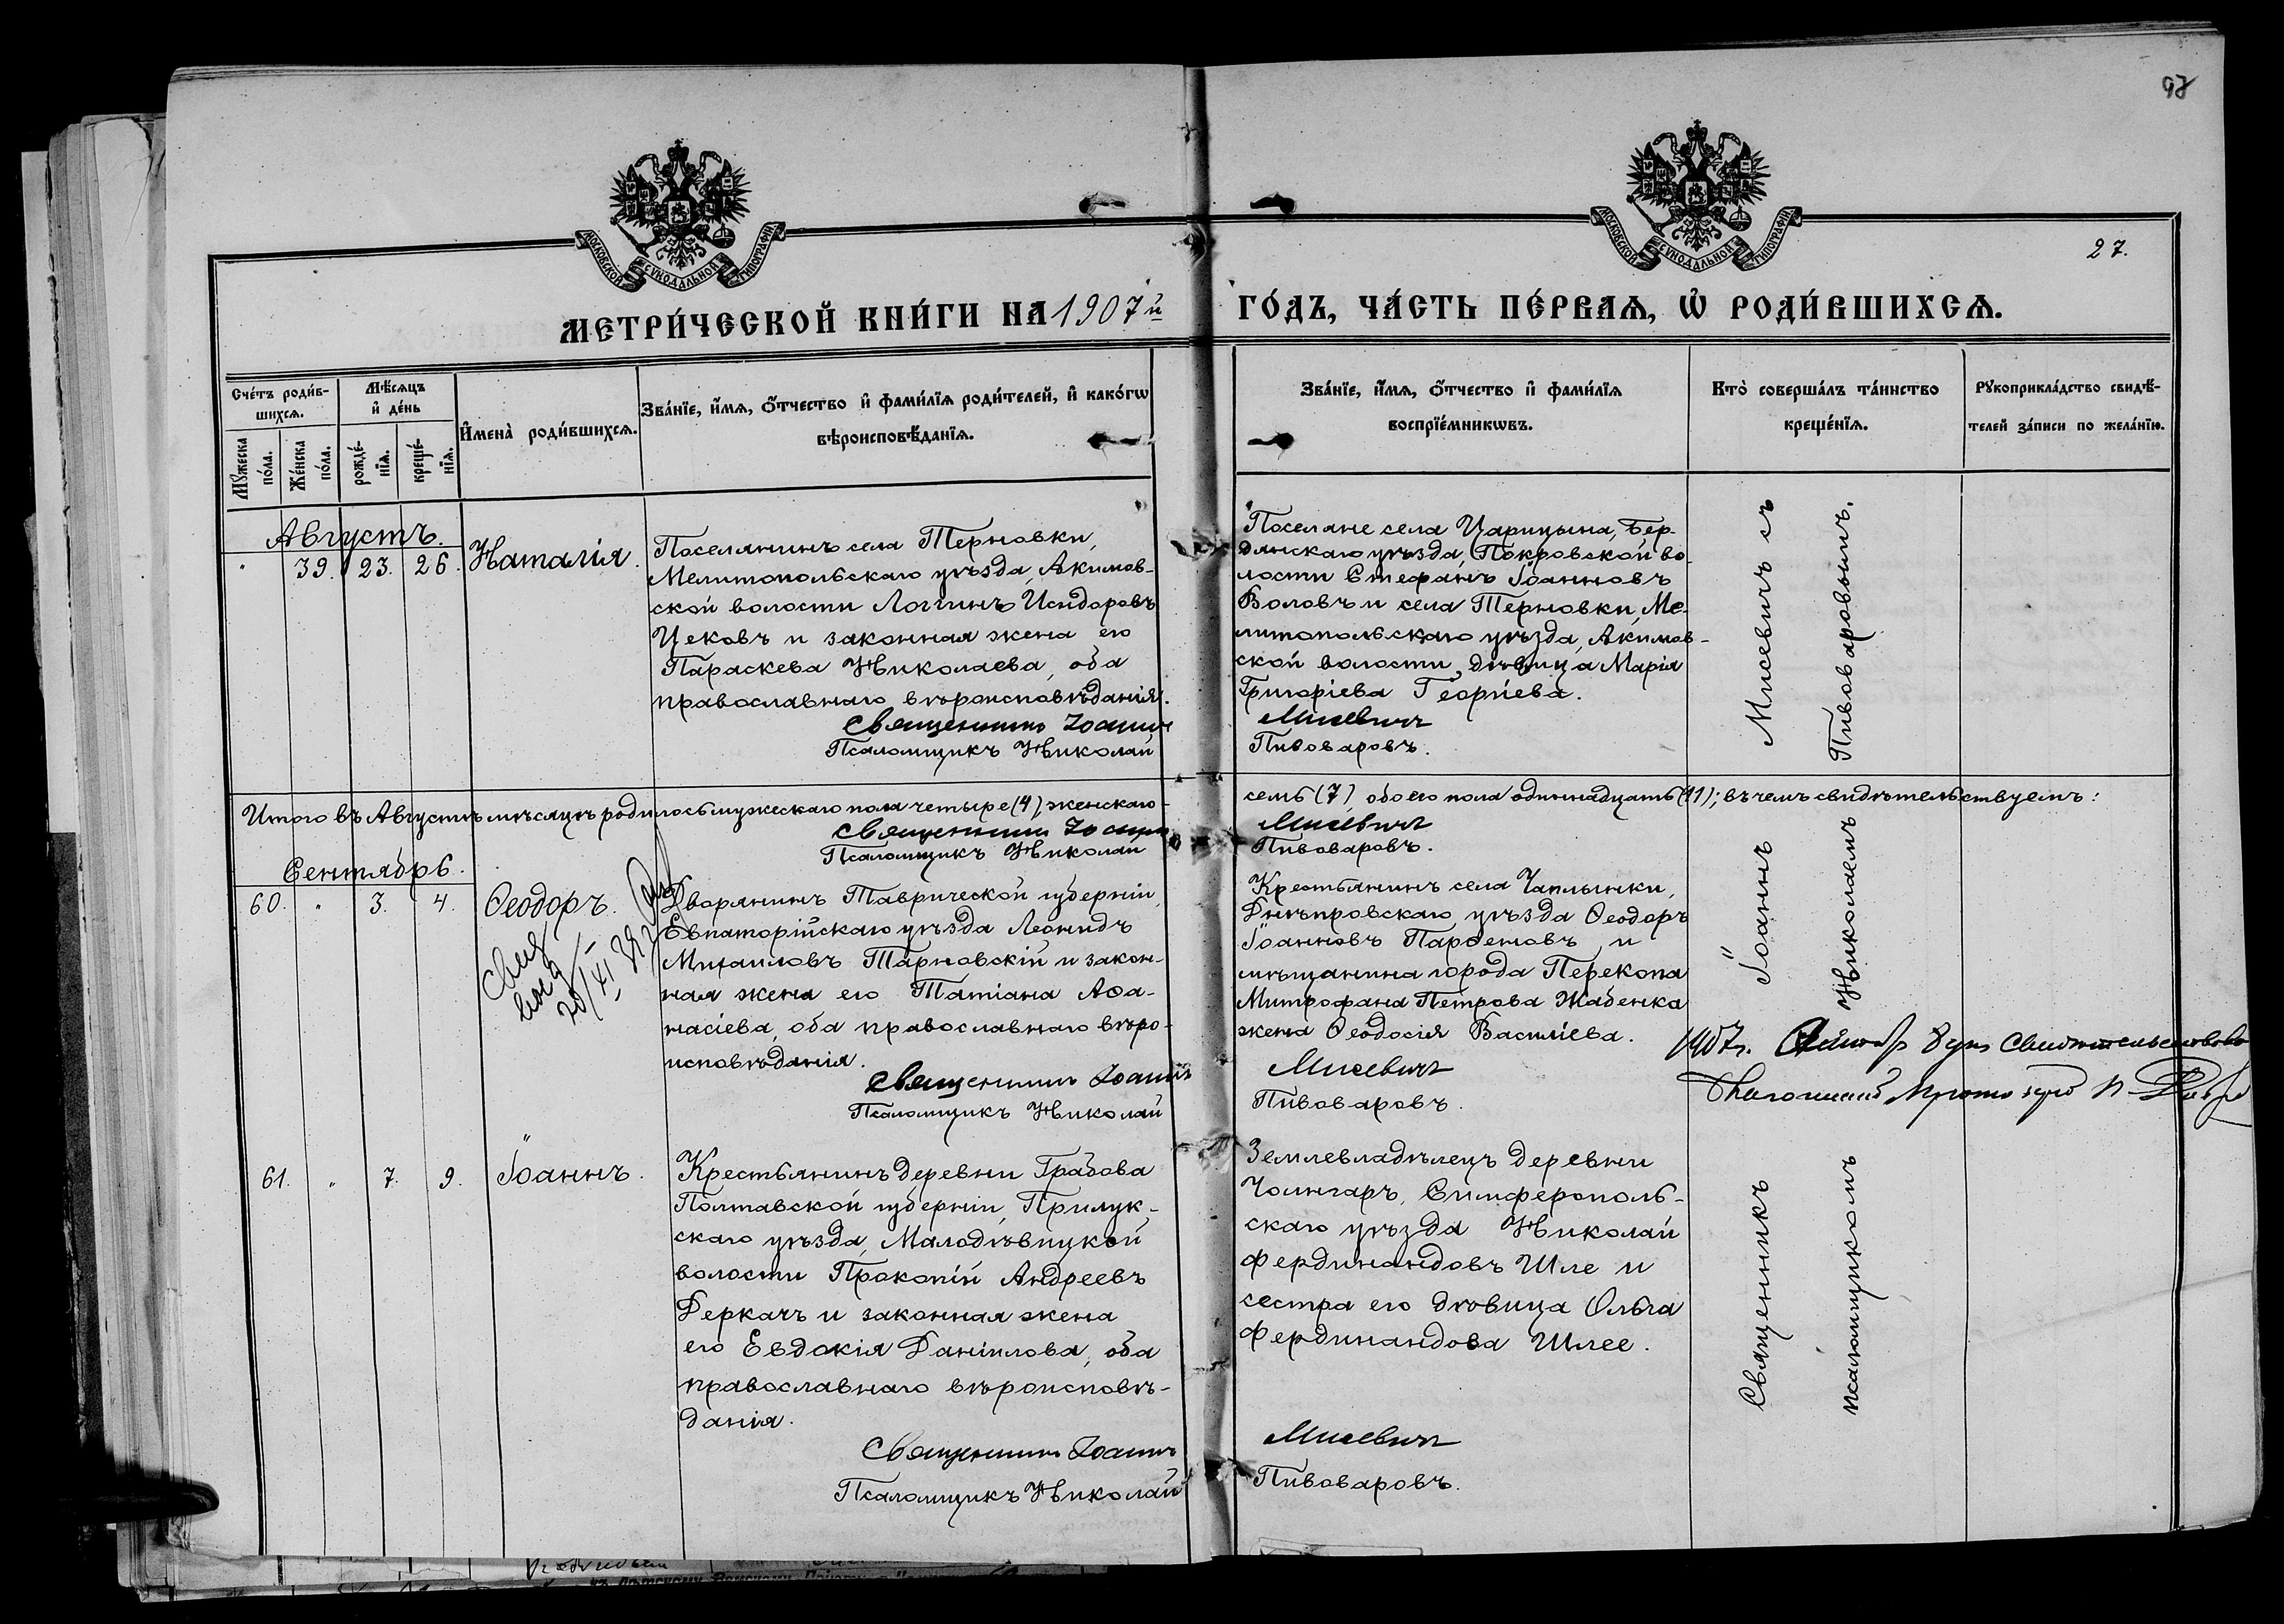 98
27.
МОСКОВСКОЙ СѴНОДАЛЬНОЙ ТИПОГРАФІИ
МОСКОВСКОЙ СѴНОДАЛЬНОЙ ТИПОГРАФІИ
МЕТРИ́ЧЕСКОЙ КНИ́ГИ НА 1907й ГО́ДЪ, ЧА́СТЬ ПЕ́РВАѦ, Ѡ҆ РОДИ́ВШИХСѦ.
Сче́тъ роди́в-
шихсѧ.
Мꙋжеска
по́ла.
Же́нска
по́ла.
Мѣ́сѧцъ
и҆ де́нь
рожде́-
нїѧ.
креще́-
нїѧ.
И҆мена̀ роди́вшихсѧ.
Зва́нїе, и҆́мѧ, ѻ҆́тчество и҆ фами́лїѧ роди́телей, и҆ како́гѡ
вѣроисповѣ́данїѧ.
Зва́нїе, и҆́мѧ, ѻ҆́тчество и҆ фами́лїѧ
воспрїе́мникѡвъ.
Кто̀ соверша́лъ та́инство
креще́нїѧ.
Рꙋкоприкла́дство свидѣ́-
телей за́писи по жела́нїю.
Августъ.
" 39. 23. 26. Наталія.
Поселянинъ села Терновки,
Мелитопольскаго уѣзда, Акимов-
ской волости Логгинъ Исидоровъ
Цековъ и законная жена его
Параскева Николаева, оба
православнаго вѣроисповѣданія.
Священникъ Іоаннъ
Псаломщикъ Николай
Поселяне села Царицына, Бер-
дянскаго уѣзда, Покровской во-
лости Стефанъ Іоанновъ
Воловъ и села Терновки, Ме-
литопольскаго уѣзда, Акимов-
ской волости, дѣвица Марія
Григоріева Георгіева.
Мисевичъ
Пивоваровъ.
Мисевичъ съ
Пивоваровымъ.
Итого въ Августѣ мѣсяцѣ родилось мужескаго пола четыре (4), женскаго
семь (7) обоего пола одиннадцать (11); въ чемъ свидѣтельствуемъ:
Священникъ Іоаннъ
Псаломщикъ Николай
Мисевичъ
Пивоваровъ.
Сентябрь.
60. " 3. 4. Ѳеодоръ.
20/XI
Дворянинъ Таврической губерніи,
Евпаторійскаго уѣзда Леонидъ
Михаиловъ Тарновскій и закон-
ная жена его Татіана Аѳа-
насіева, оба православнаго вѣро-
исповѣданія.
Священникъ Іоаннъ
Псаломщикъ Николай
Крестьянинъ села Чаплынки,
Днѣпровскаго уѣзда Ѳеодоръ
Іоанновъ Парѳеновъ и
мѣщанина города Перекопа
Митрофана Петрова Жабенка
жена Ѳеодосія Василіева.
Мисевичъ
Пивоваровъ.
Іоаннъ
Николаемъ
1907г.
61. " 7. 9. Іоаннъ.
Крестьянинъ деревни Грабова
Полтавской губерніи, Прилук-
скаго уѣзда, Малодѣвицкой
волости Прокопій Андреевъ
Деркачъ и законная жена
его Евдокія Даніилова, оба
православнаго вѣроисповѣ-
данія.
Священникъ Іоаннъ
Псаломщикъ Николай
Землевладѣлецъ деревни
Чонгаръ, Симферополь-
скаго уѣзда Николай
Фердинандовъ Шле и
сестра его дѣвица Ольга
Фердинандова Шлее.
Мисевичъ
Пивоваровъ.
Священникъ
псаломщикомъ